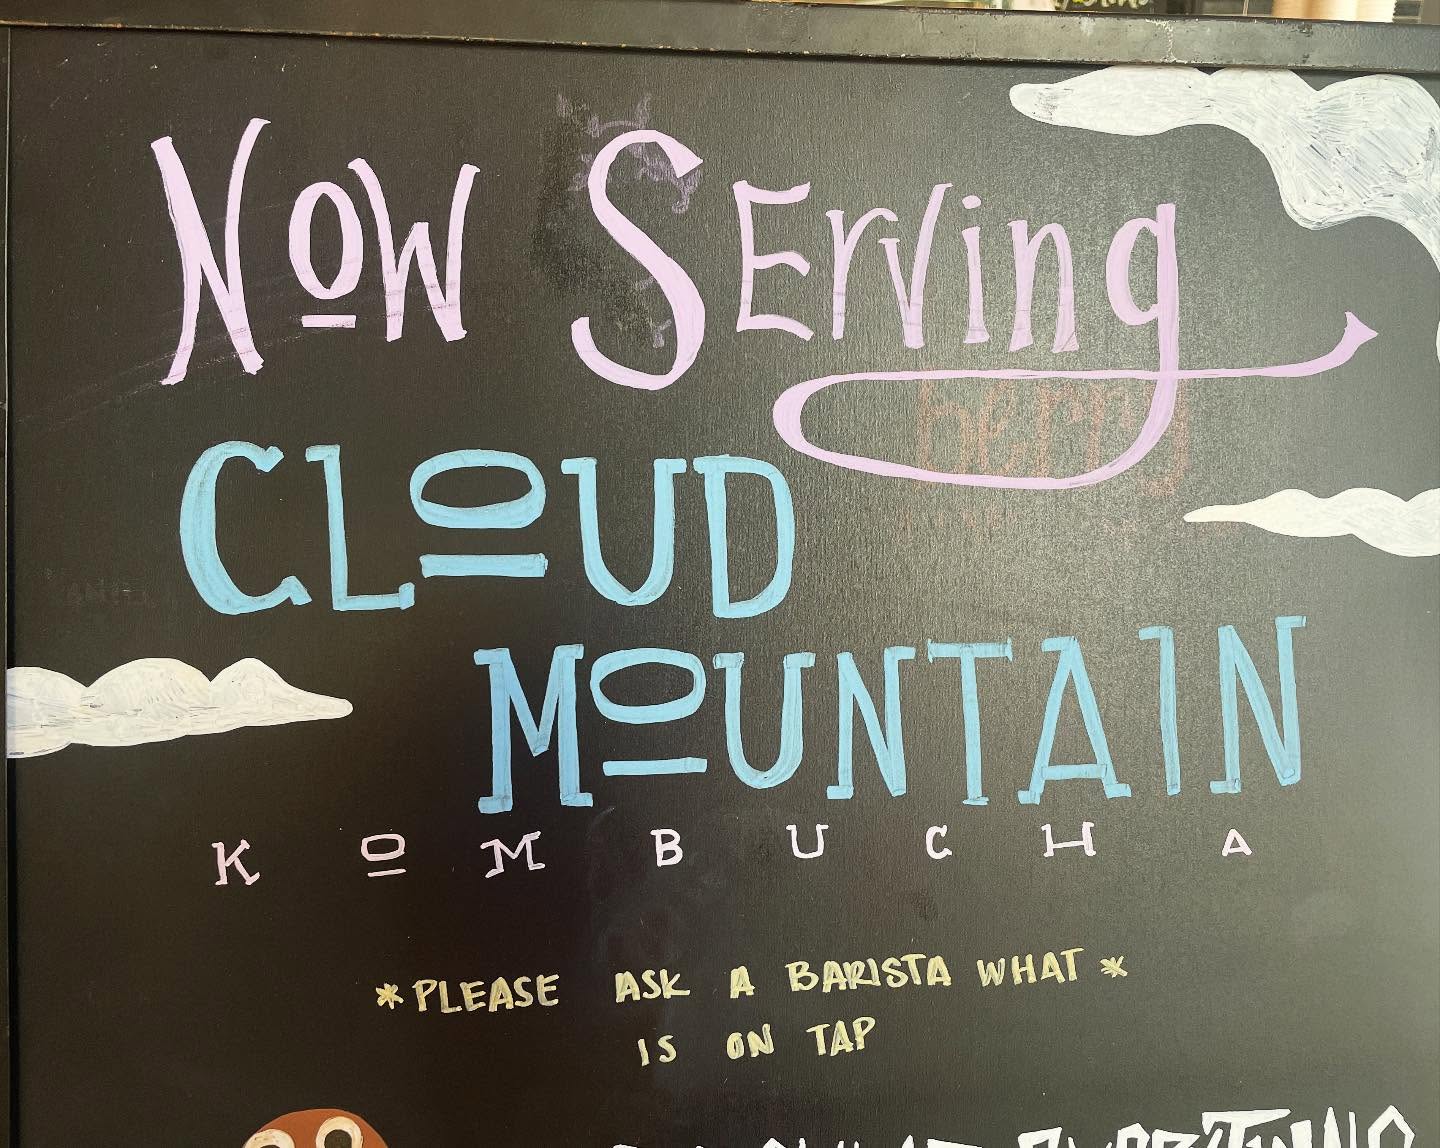 Now Serving
berry
CLOUD
MOUNTAIN
KOMBUCHA
*PLEASE ASK A BARISTA WHAT*
IS ON TAP